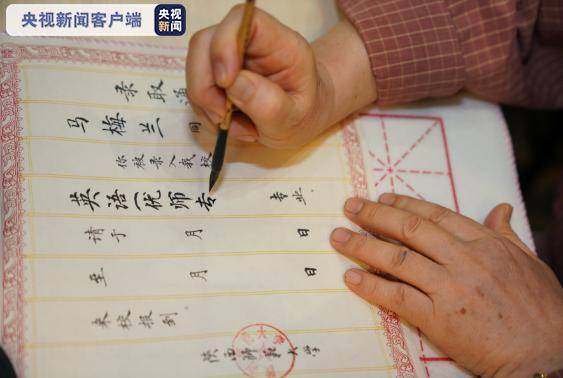 央视新闻客户端
央视
新闻
录取通
马梅兰 同
你被录入我校
英语（优师专 专业。
请于 月 日
至 月 日
来校报到。
陕西师范大学